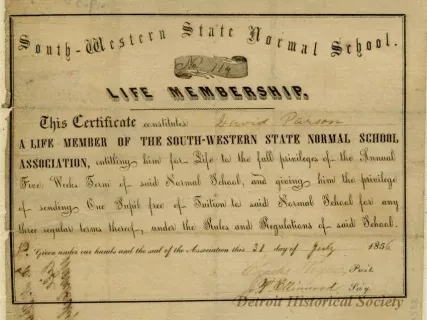 South-Western State Normal School.
No. 114
LIFE MEMBERSHIP.
This Certificate constitutes David Parson
A LIFE MEMBER OF THE SOUTH-WESTERN STATE NORMAL SCHOOL
ASSOCIATION, entitling him for Life to the full privileges of the Annual
Five Weeks Term of said Normal School, and giving him the privilege
of sending One Pupil free of Tuition to said Normal School for any
three regular terms thereof, under the Rules and Regulations of said School.
Given under our hands and the seal of the Association this 21 day of July 1856
Prest
Ellinwood Sey
Detroit Historical Society